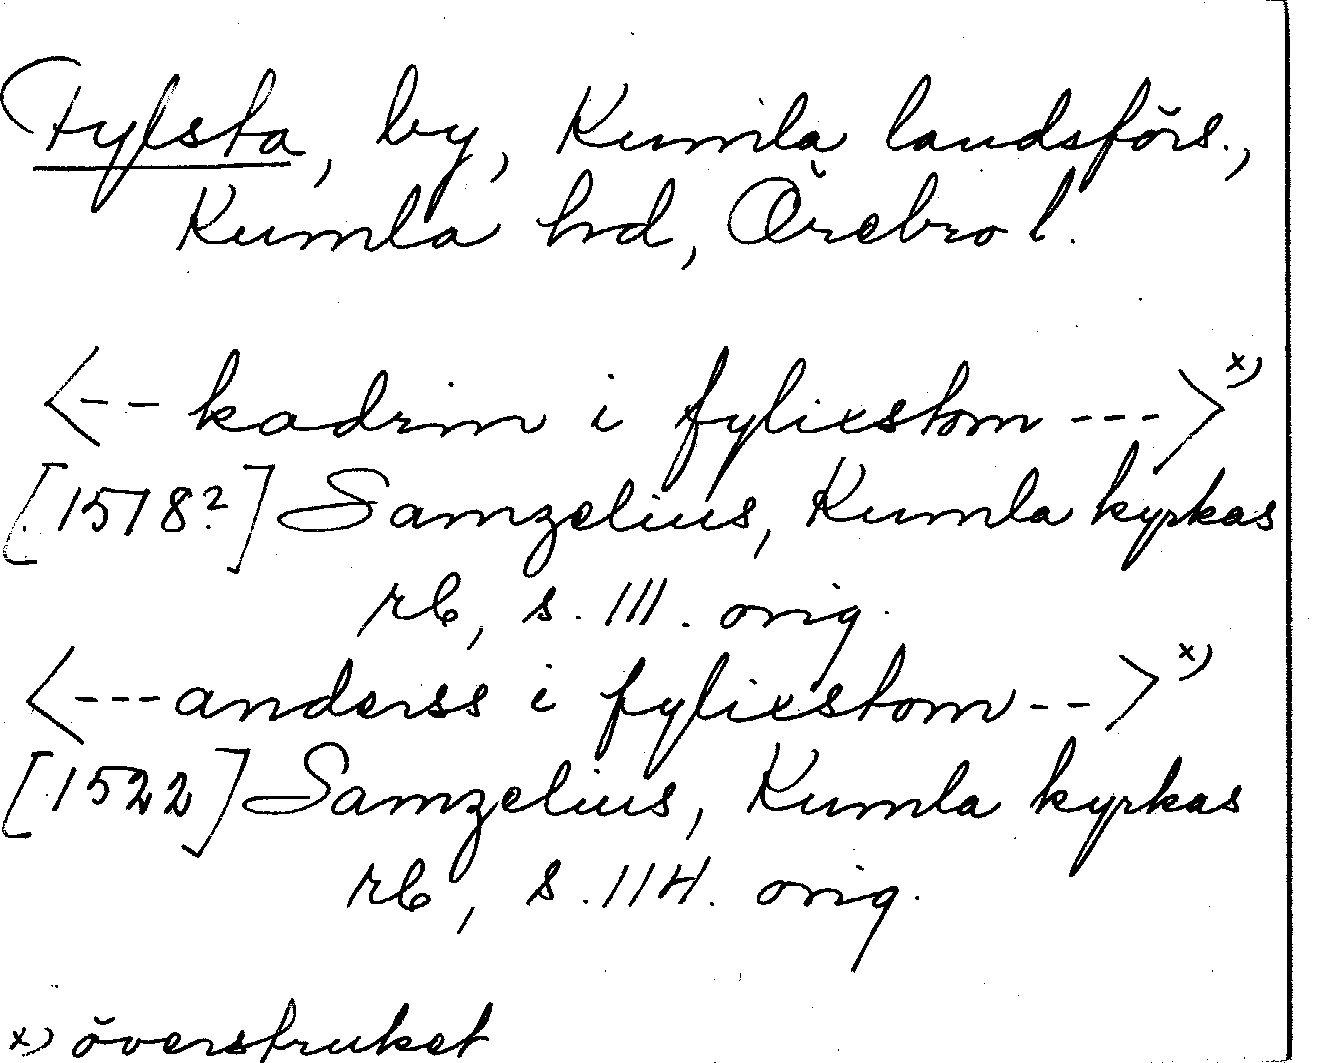 Fylsta, by, Kumla landsförs.,
Kumla hd, Örebro l.
<-- kadrin i fylixstom --->x)
[1518?] Samzelius, Kumla kyrkas
rb, s. 111. orig.
<---anderss i fylixstom -->x)
[1522] Samzelius, Kumla kyrkas
rb, s. 114. orig.
x) överstruket